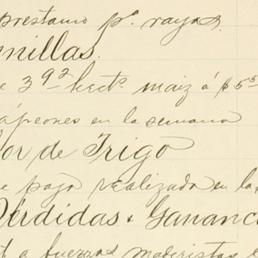 prestamo pa. rayas.
millas.
e 392 hects. maiz á $5.5
á peones en la semana
or de Trigo
e paja realizada en la
Pérdidas & Gananc
á fuerzas maderistas